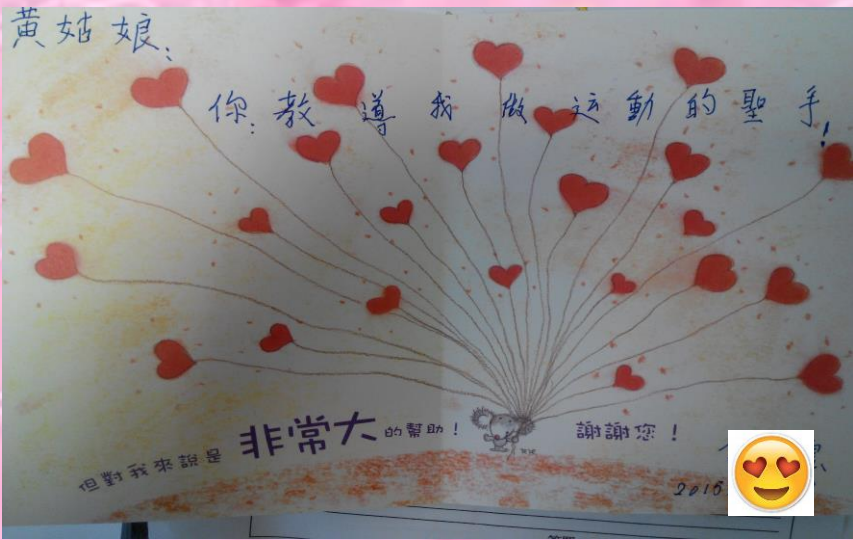 黃姑娘:
你:教導我做运動的聖手!
但對我來說是非常大的幫助! 謝謝您!
2016